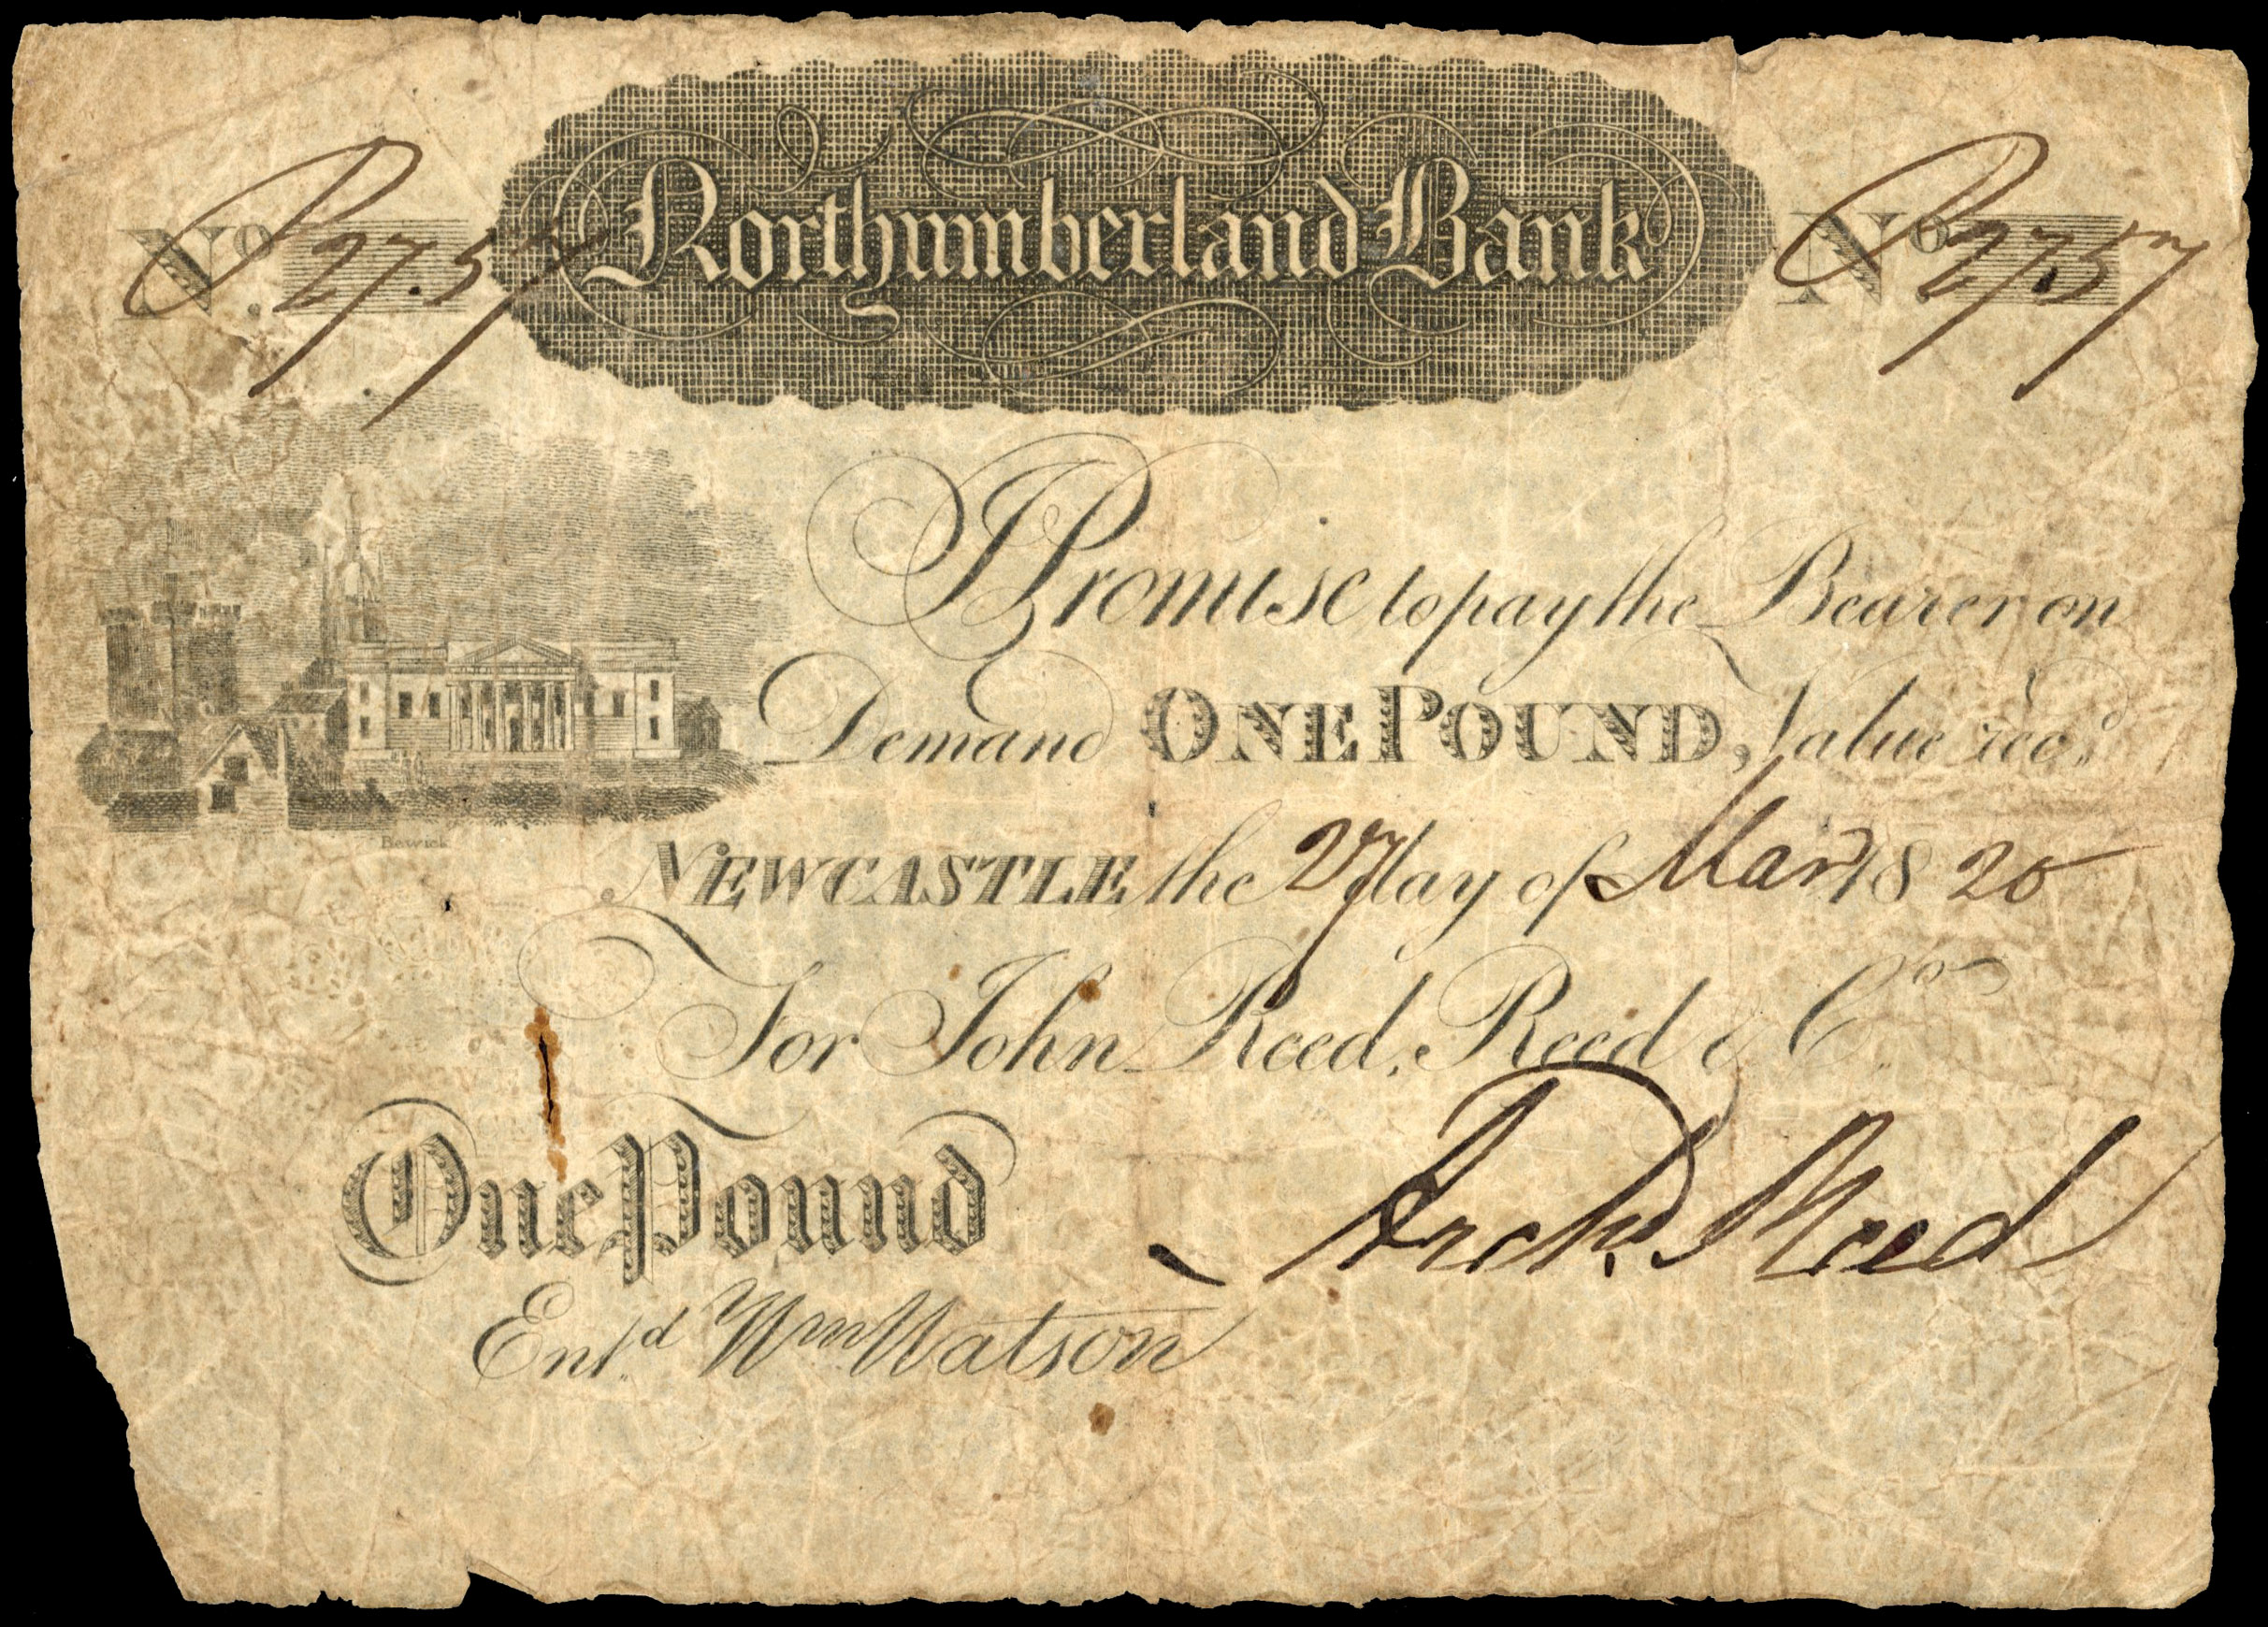 Northumberland Bank
No. P 27.57
No P 27.57
I Promise to pay the Bearer on
Demand ONE POUND, Value recd.
Bewick
NEWCASTLE the 27 day of Mar 1820
For John Reed, Reed & Co.
One Pound
Archd. Reed
Entd. Wm Watson